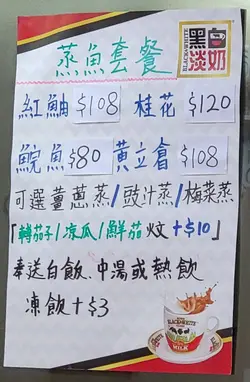 黑白淡奶
BLACK&WHITE
蒸魚套餐
紅鮋 $108 桂花 $120
鯇魚 $80 黃立倉 $108
可選薑蔥蒸/豉汁蒸/梅菜蒸
「轉茄子/凉瓜/鮮茄炆 +$10」
奉送白飯、中湯或熱飲
凍飲+$3
BLACK&WHITE
MILK